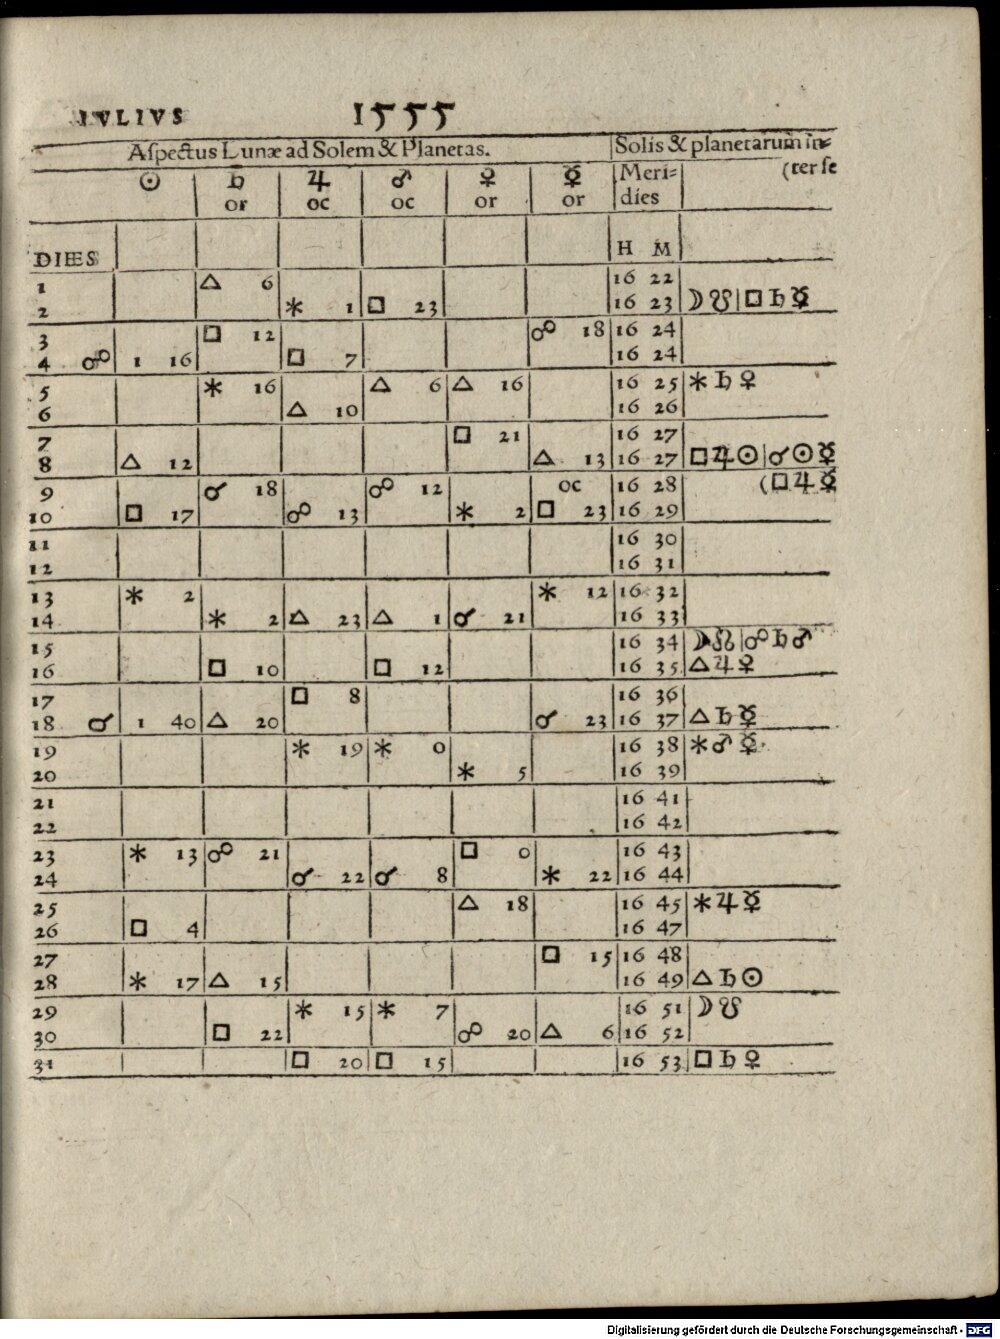 IVLIVS 1555
Aſpectus Lunæ ad Solem & Planetas. Solis & planetarum in⸗
(ter ſe
☉ ♄ ♃ ♂ ♀ ☿ Meri⸗
or oc oc or or dies
DIES H M
1 △ 6 16 22
2 ⚹ 1 □ 23 16 23 ☽ ☋ | □ ♄ ☿
3 □ 12 ☍ 18 16 24
4 ☍ 1 16 □ 7 16 24
5 ⚹ 16 △ 6 △ 16 16 25 ⚹ ♄ ♀
6 △ 10 16 26
7 □ 21 16 27
8 △ 12 △ 13 16 27 □ ♃ ☉ | ☌ ☉ ☿
9 ☌ 18 ☍ 12 oc 16 28 (□ ♃ ☿
10 □ 17 ☍ 13 ⚹ 2 □ 23 16 29
11 16 30
12 16 31
13 ⚹ 2 ⚹ 12 16 32
14 ⚹ 2 △ 23 △ 1 ☌ 21 16 33
15 16 34 ☽ ☊ | ☍ ♄ ♂
16 □ 10 □ 12 16 35 △ ♃ ♀
17 □ 8 16 36
18 ☌ 1 40 △ 20 ☌ 23 16 37 △ ♄ ☿
19 ⚹ 19 ⚹ 0 16 38 ⚹ ♂ ☿
20 ⚹ 5 16 39
21 16 41
22 16 42
23 ⚹ 13 ☍ 21 □ 0 16 43
24 ☌ 22 ☌ 8 ⚹ 22 16 44
25 △ 18 16 45 ⚹ ♃ ☿
26 □ 4 16 47
27 □ 15 16 48
28 ⚹ 17 △ 15 16 49 △ ♄ ☉
29 ⚹ 15 ⚹ 7 16 51 ☽ ☋
30 □ 22 ☍ 20 △ 6 16 52
31 □ 20 □ 15 16 53 □ ♄ ♀
Digitalisierung gefördert durch die Deutsche Forschungsgemeinschaft - DFG